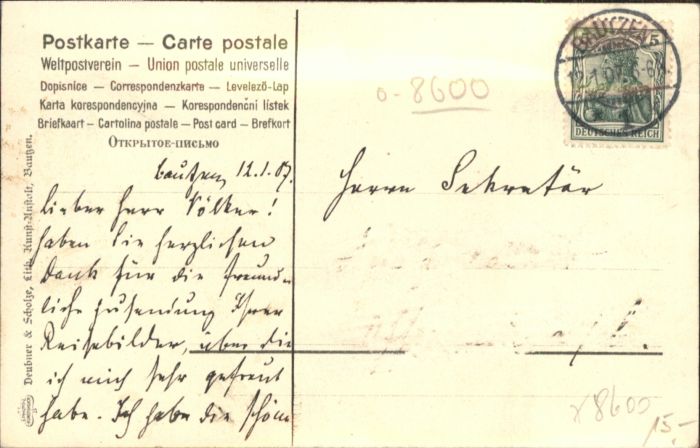 Postkarte — Carte postale
Weltpostverein — Union postale universelle
Dopisnice — Correspondenzkarte — Levelező-Lap
Karta korespondencyjna — Korespondenční lístek
Briefkaart — Cartolina postale — Post card — Brefkort
Открытое-письмо
Deubner & Scholze, Lith. Kunst-Anstalt, Bautzen.
Bautzen, 12.1.07.
Lieber Herr Völker!
Haben Sie herzlichen
Dank für die freund-
liche Zusendung Ihrer
Reisebilder, über die
ich mich sehr gefreut
habe. Ich habe die schöne
o-8600
BAUTZEN
12.1.07
5
DEUTSCHES REICH
Herrn Sekretär
x 8600
15.-